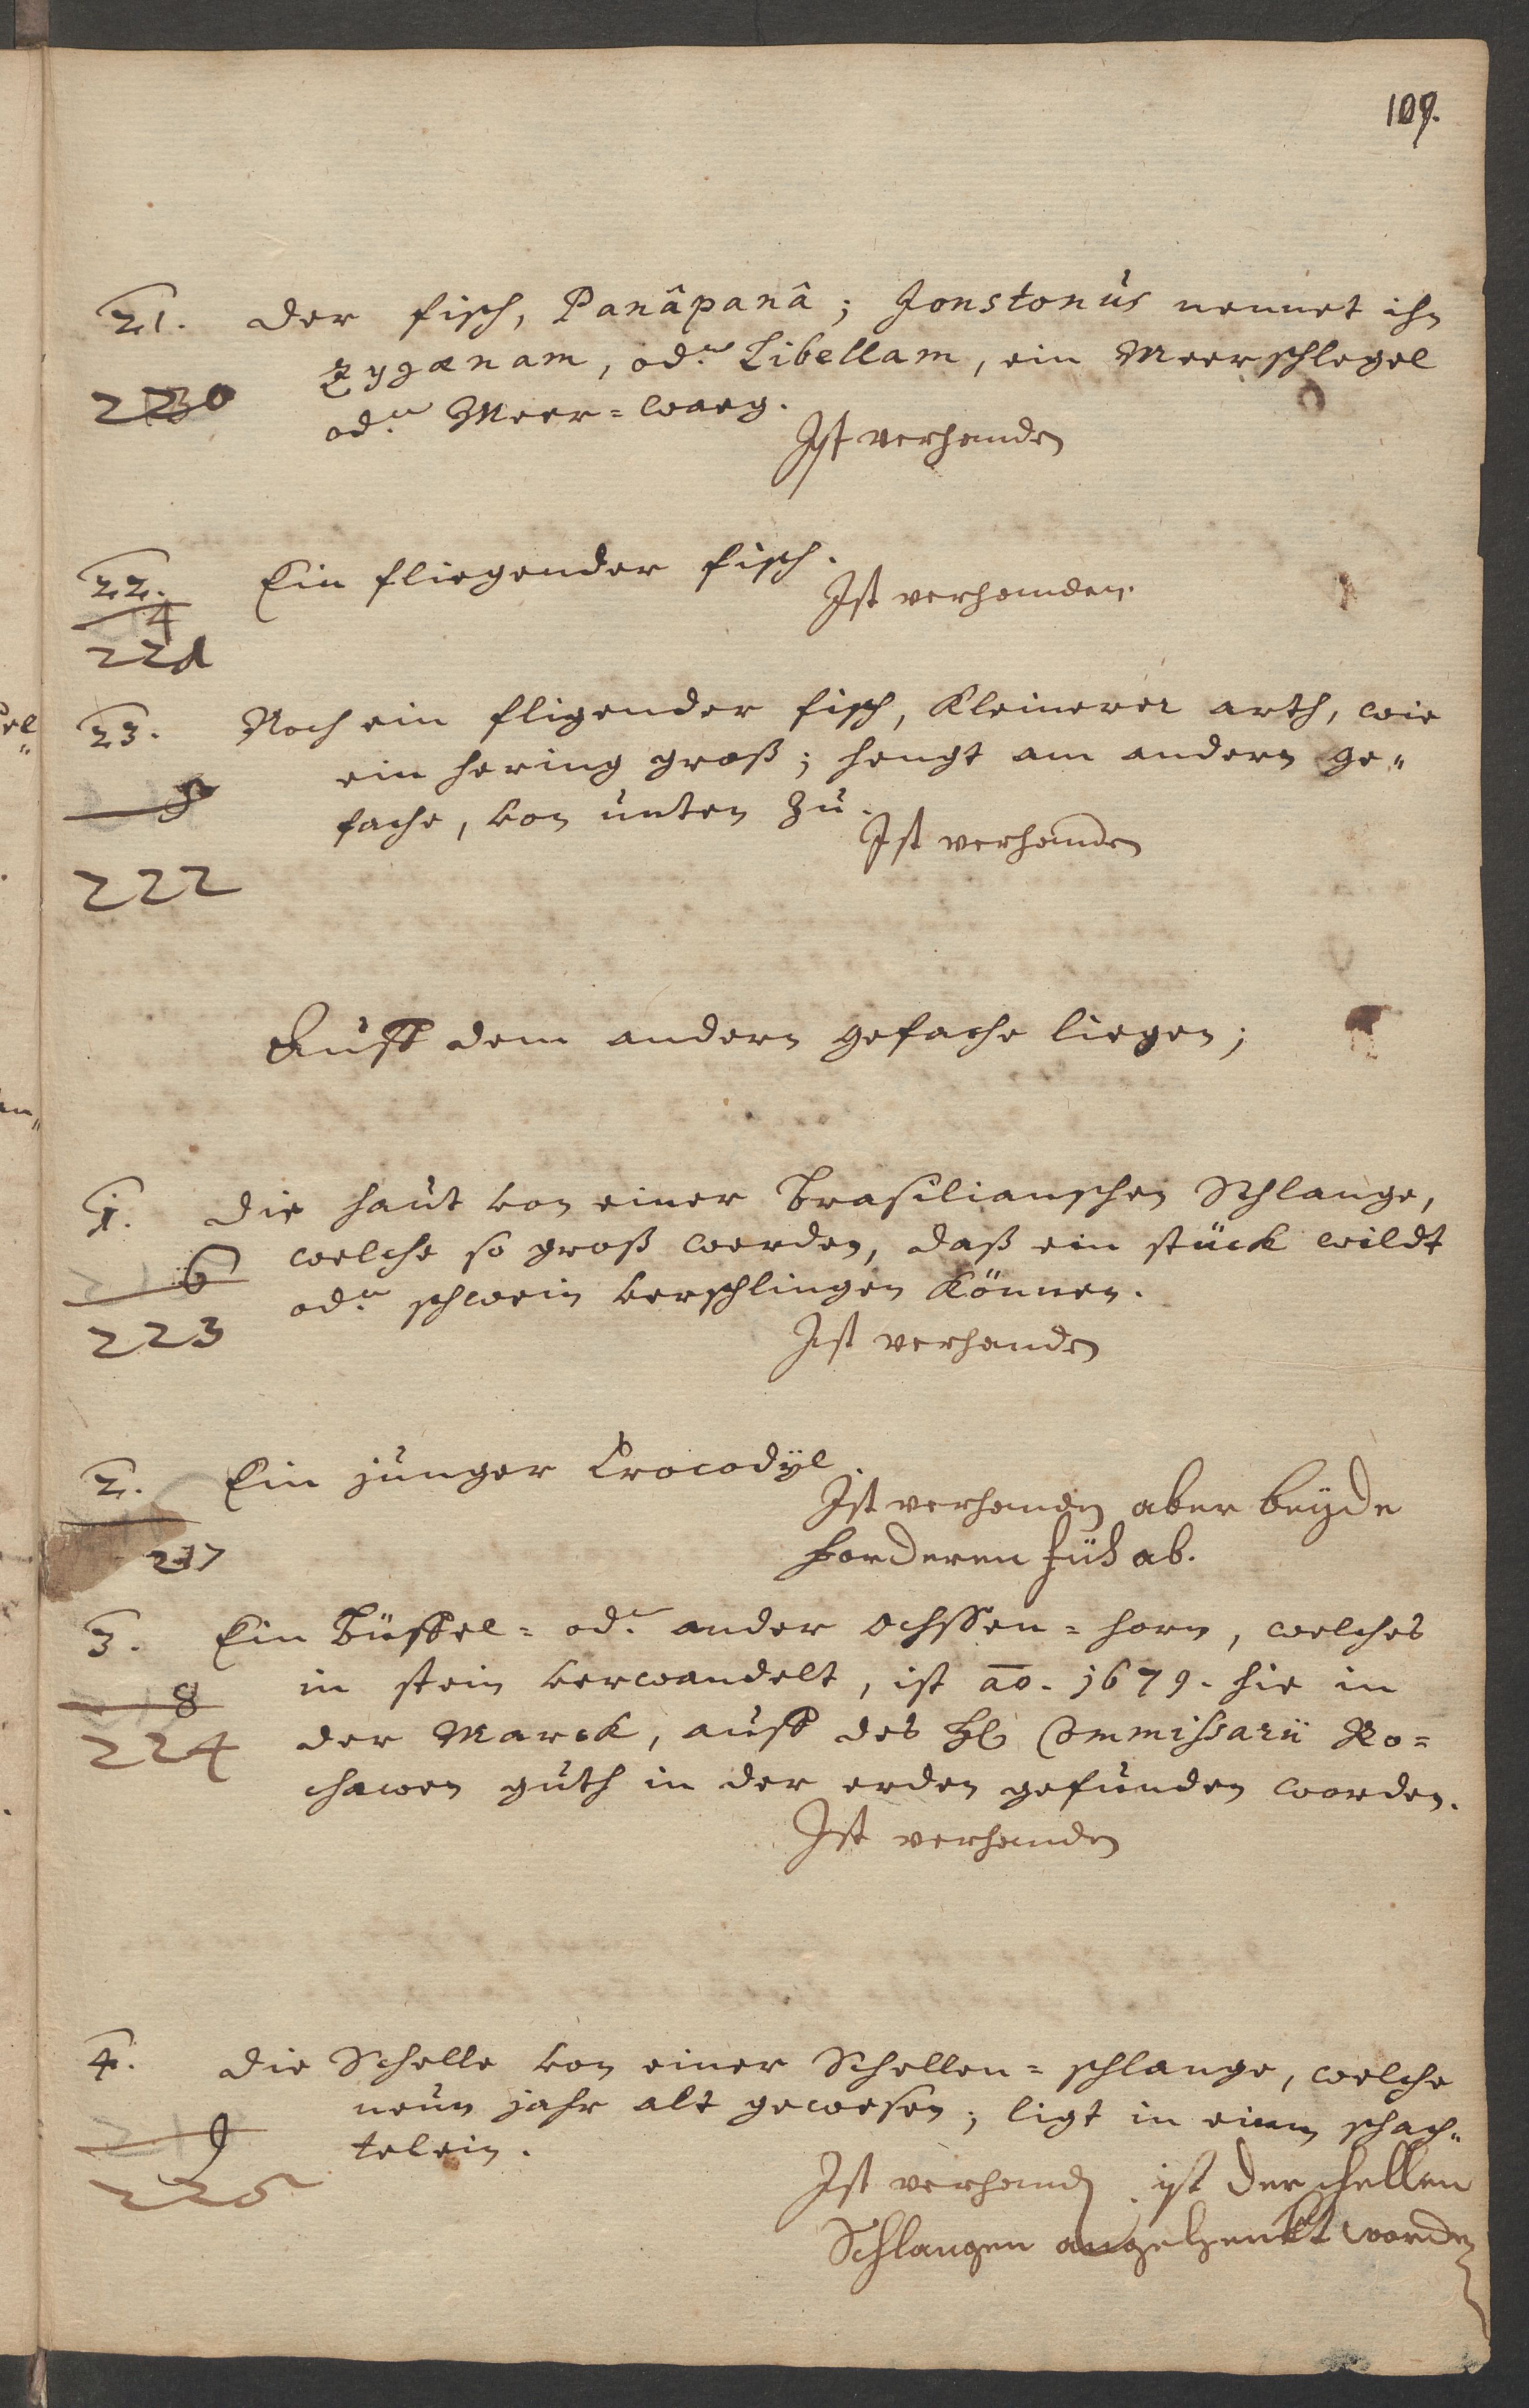 109.
21. Der fisch, Panâpanâ; Jonstonus nennet ihn
Zygænam, od. Libellam, ein Meerschlegel
220
od. Meer=waag.
Ist verhanden
22. Ein fliegender fisch.
Ist verhanden.
4
221
23. Noch ein fligender fisch, Kleinerer arth, wie
ein hering groß; hengt am andern ge„
5
fache, von unten zu.
Ist verhanden
222
Auff dem andern gefache liegen;
1. Die haut von einer Brasilianschen Schlange,
welche so groß werden, daß ein stück wildt
6
od. schwein verschlingen Können.
223
Ist verhanden
2. Ein junger Crocodÿl.
Ist verhanden aber beÿde
217
forderen füß ab.
3. Ein Büffel= od. ander Ochssen=horn, welches
in stein verwandelt, ist ao. 1679. hie in
8
224
der Marck, auff des H. Commissarii Ro=
chawen guth in der erden gefunden worden.
Ist verhanden
4. Die Schelle von einer Schellen=schlange, welche
neun jahr alt gewesen; ligt in einem schach„
9
telein.
225
Ist verhanden ist der schellen
Schlangen angehenkt worden